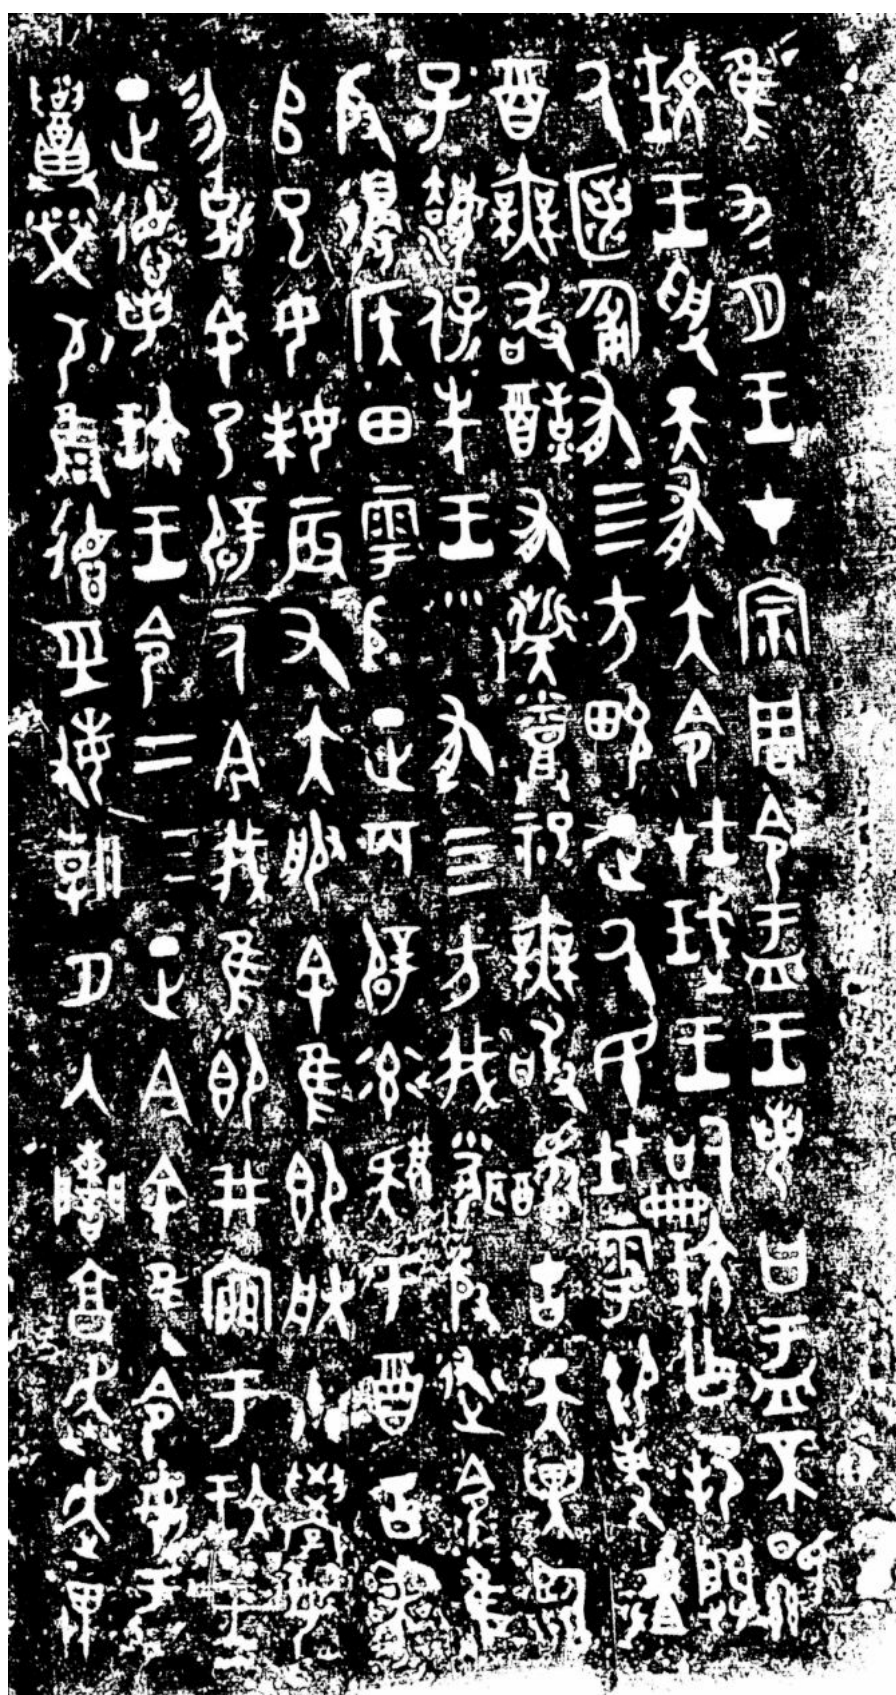 隹九月王才宗周令盂王若曰盂不顯
玟王受天有大令在珷王嗣玟乍邦闢
厥匿匍有四方畯正厥民在雩御事䖒
酉無敢酖有祡烝祀無敢醻古天異臨
子灋保先王有四方我聞殷述令隹
殷邊侯田雩殷正百辟率肄于酉古喪
𠂤巳女妹辰又大服余隹即朕小學女
勿余乃辟一人今我隹即井㐭于玟王
正德若玟王令二三正今余隹令女盂
召榮敬雝德巠敏朝夕入讕享奔走畏